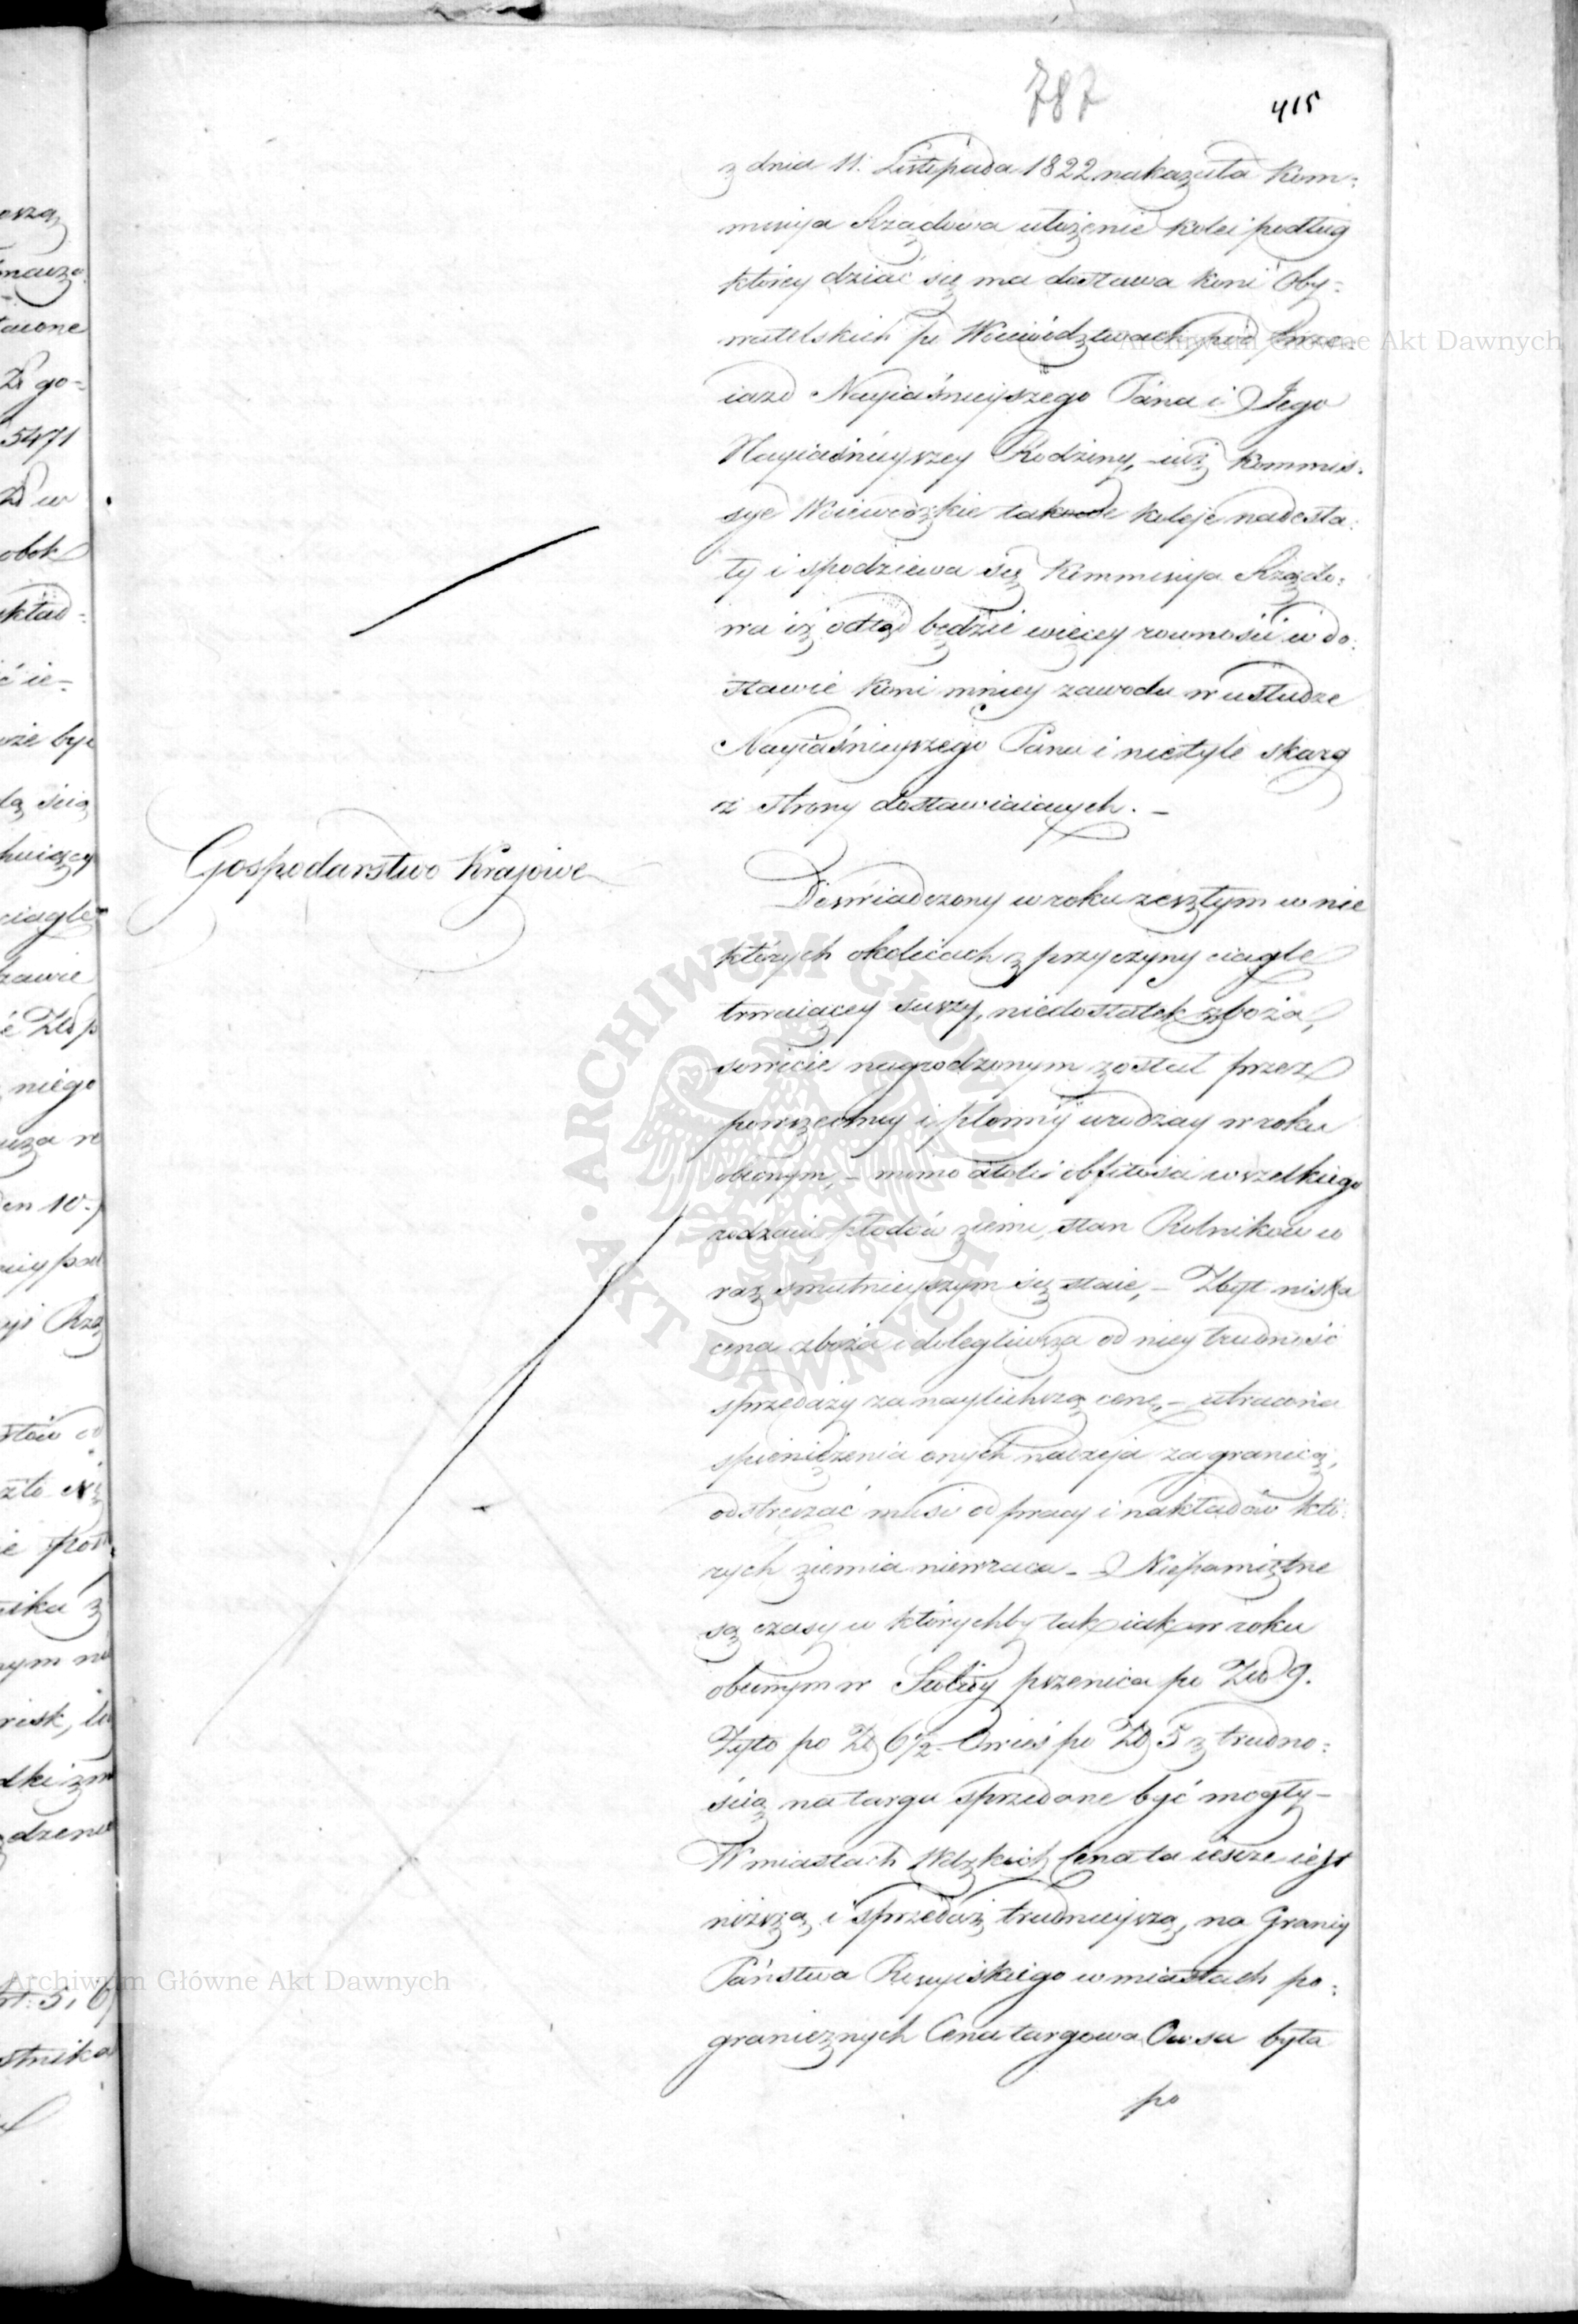 787
415
z dnia 11. Listopada 1822 nakazała Kom:
missya Rządowa ułożenie kolei podług
którey dziać się ma dostawa koni Oby:
watelskich po Woiewództwach pod Prze:
iazd Nayiaśnieyszego Pana i Jego
Nayiaśnieyszey Rodziny, – iuż Kommis:
sye Woiewódzkie takowe koleje nadesła:
ły i spodziewa się Kommissya Rządo:
wa iż odtąd będzie więcey rowności w do:
stawie koni mniey zawodu w usłudze
Nayiaśnieyszego Pana i nietyle skarg
ze strony dostawiaiących. –
Gospodarstwo Krajowe
Doświadczony w roku zeszłym w nie
których okolicach z przyczyny ciągle
trwaiącey suszy, niedostatek zboża,
sowicie nagrodzonym został przez
powszechny i plonny urodzay w roku
obecnym, – mimo atoli obfitości wszelkiego
rodzaiu płodów ziemi, stan Rolników co
raz smutnieyszym się staie, – Zbyt niska
cena zboża i dolegliwsza od niey trudność
sprzedaży za naylichszą cenę, – utracona
spieniężenia onych nadzieja za granicą,
odstręczać musi od pracy i nakładów któ:
rych ziemia niewraca. – Niepamiętne
są czasy w którychby tak iak w roku
obecnym w Stolicy pszenica po Złp 9.
Żyto po Zł 6½ – Owies po Zł 5 z trudno:
ścią na targu sprzedane być mogły –
W miastach Wdzkich Cena ta ieszcze iest
niższą, i sprzedaż trudnieyszą, na Granicy
Państwa Rossyiskiego w miastach po:
granicznych Cena targowa Owsa była
po
Archiwum Główne Akt Dawnych
Archiwum Główne Akt Dawnych
ARCHIWUM GŁÓWNE · AKT DAWNYCH ·